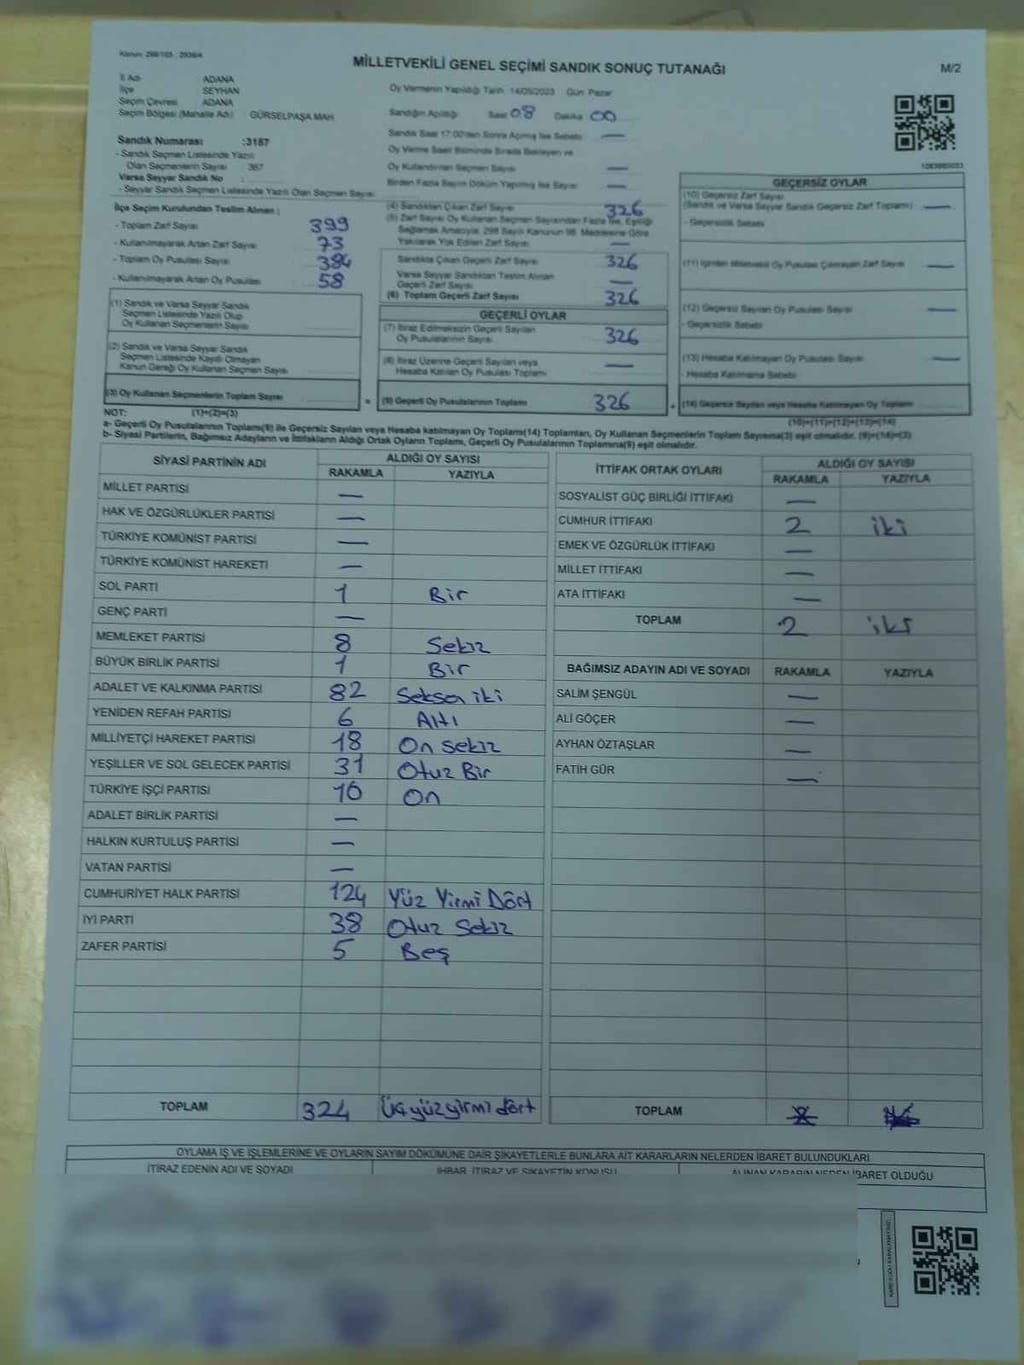 MİLLETVEKİLİ GENEL SEÇİMİ SANDIK SONUÇ TUTANAĞI
M/2
İl Adı ADANA
İlçe SEYHAN
Seçim Çevresi ADANA
Seçim Bölgesi (Mahalle Adı) GÜRSELPAŞA MAH
Sandık Numarası :3187
- Sandık Seçmen Listesinde Yazılı
Olan Seçmenlerin Sayısı 387
Varsa Seyyar Sandık No
- Seyyar Sandık Seçmen Listesinde Yazılı Olan Seçmen Sayısı
İlçe Seçim Kurulundan Teslim Alınan :
- Toplam Zarf Sayısı 399
- Kullanılmayarak Artan Zarf Sayısı 73
- Toplam Oy Pusulası Sayısı 384
- Kullanılmayarak Artan Oy Pusulası 58
(1) Sandık ve Varsa Seyyar Sandık
Seçmen Listesinde Yazılı Olup
Oy Kullanan Seçmenlerin Sayısı
(2) Sandık ve Varsa Seyyar Sandık
Seçmen Listesinde Kayıtlı Olmayan
Kanun Gereği Oy Kullanan Seçmen Sayısı
(3) Oy Kullanan Seçmenlerin Toplam Sayısı
Oy Vermenin Yapıldığı Tarih 14/05/2023 Gün Pazar
Sandığın Açıldığı Saat 08 Dakika 00
Sandık Saat 17:00'den Sonra Açılmış İse Sebebi —
Oy Verme Saati Bitiminde Sırada Bekleyen ve
Oy Kullandırılan Seçmen Sayısı —
Birden Fazla Sayım Döküm Yapılmış İse Sayısı —
(4) Sandıktan Çıkan Zarf Sayısı 326
(5) Zarf Sayısı Oy Kullanan Seçmen Sayısından Fazla İse, Eşitliği
Sağlamak Amacıyla, 298 Sayılı Kanunun 98. Maddesine Göre
Yakılarak Yok Edilen Zarf Sayısı —
Sandıkta Çıkan Geçerli Zarf Sayısı 326
Varsa Seyyar Sandıktan Teslim Alınan
Geçerli Zarf Sayısı —
(6) Toplam Geçerli Zarf Sayısı 326
GEÇERLİ OYLAR
(7) İtiraz Edilmeksizin Geçerli Sayılan
Oy Pusulalarının Sayısı 326
(8) İtiraz Üzerine Geçerli Sayılan veya
Hesaba Katılan Oy Pusulası Toplamı —
(9) Geçerli Oy Pusulalarının Toplamı 326
GEÇERSİZ OYLAR
(10) Geçersiz Zarf Sayısı
(Sandık ve Varsa Seyyar Sandık Geçersiz Zarf Toplamı) —
- Geçersizlik Sebebi
(11) İçinden Milletvekili Oy Pusulası Çıkmayan Zarf Sayısı —
(12) Geçersiz Sayılan Oy Pusulası Sayısı —
- Geçersizlik Sebebi
(13) Hesaba Katılmayan Oy Pusulası Sayısı —
- Hesaba Katılmama Sebebi
(14) Geçersiz Sayılan veya Hesaba Katılmayan Oy Toplamı
NOT: (1)+(2)=(3) (10)+(11)+(12)+(13)=(14)
a- Geçerli Oy Pusulalarının Toplamı(9) ile Geçersiz Sayılan veya Hesaba katılmayan Oy Toplamı(14) Toplamları, Oy Kullanan Seçmenlerin Toplam Sayısına(3) eşit olmalıdır. (9)+(14)=(3)
b- Siyasi Partilerin, Bağımsız Adayların ve İttifakların Aldığı Ortak Oyların Toplamı, Geçerli Oy Pusulalarının Toplamına(9) eşit olmalıdır.
SİYASİ PARTİNİN ADI ALDIĞI OY SAYISI
RAKAMLA YAZIYLA
MİLLET PARTİSİ —
HAK VE ÖZGÜRLÜKLER PARTİSİ —
TÜRKİYE KOMÜNİST PARTİSİ —
TÜRKİYE KOMÜNİST HAREKETİ —
SOL PARTİ 1 Bir
GENÇ PARTİ —
MEMLEKET PARTİSİ 8 Sekiz
BÜYÜK BİRLİK PARTİSİ 1 Bir
ADALET VE KALKINMA PARTİSİ 82 Seksen iki
YENİDEN REFAH PARTİSİ 6 Altı
MİLLİYETÇİ HAREKET PARTİSİ 18 On sekiz
YEŞİLLER VE SOL GELECEK PARTİSİ 31 Otuz Bir
TÜRKİYE İŞÇİ PARTİSİ 10 On
ADALET BİRLİK PARTİSİ —
HALKIN KURTULUŞ PARTİSİ —
VATAN PARTİSİ —
CUMHURİYET HALK PARTİSİ 124 Yüz Yirmi Dört
İYİ PARTİ 38 Otuz Sekiz
ZAFER PARTİSİ 5 Beş
TOPLAM 324 Üçyüzyirmi dört
İTTİFAK ORTAK OYLARI ALDIĞI OY SAYISI
RAKAMLA YAZIYLA
SOSYALİST GÜÇ BİRLİĞİ İTTİFAKI —
CUMHUR İTTİFAKI 2 iki
EMEK VE ÖZGÜRLÜK İTTİFAKI —
MİLLET İTTİFAKI —
ATA İTTİFAKI —
TOPLAM 2 iki
BAĞIMSIZ ADAYIN ADI VE SOYADI RAKAMLA YAZIYLA
SALİM ŞENGÜL —
ALİ GÖÇER —
AYHAN ÖZTAŞLAR —
FATİH GÜR —
TOPLAM
OYLAMA İŞ VE İŞLEMLERİNE VE OYLARIN SAYIM DÖKÜMÜNE DAİR ŞİKAYETLERLE BUNLARA AİT KARARLARIN NELERDEN İBARET BULUNDUKLARI
İTİRAZ EDENİN ADI VE SOYADI
İHBAR, İTİRAZ VE ŞİKAYETİN KONUSU
ALINAN KARARIN NEDEN İBARET OLDUĞU